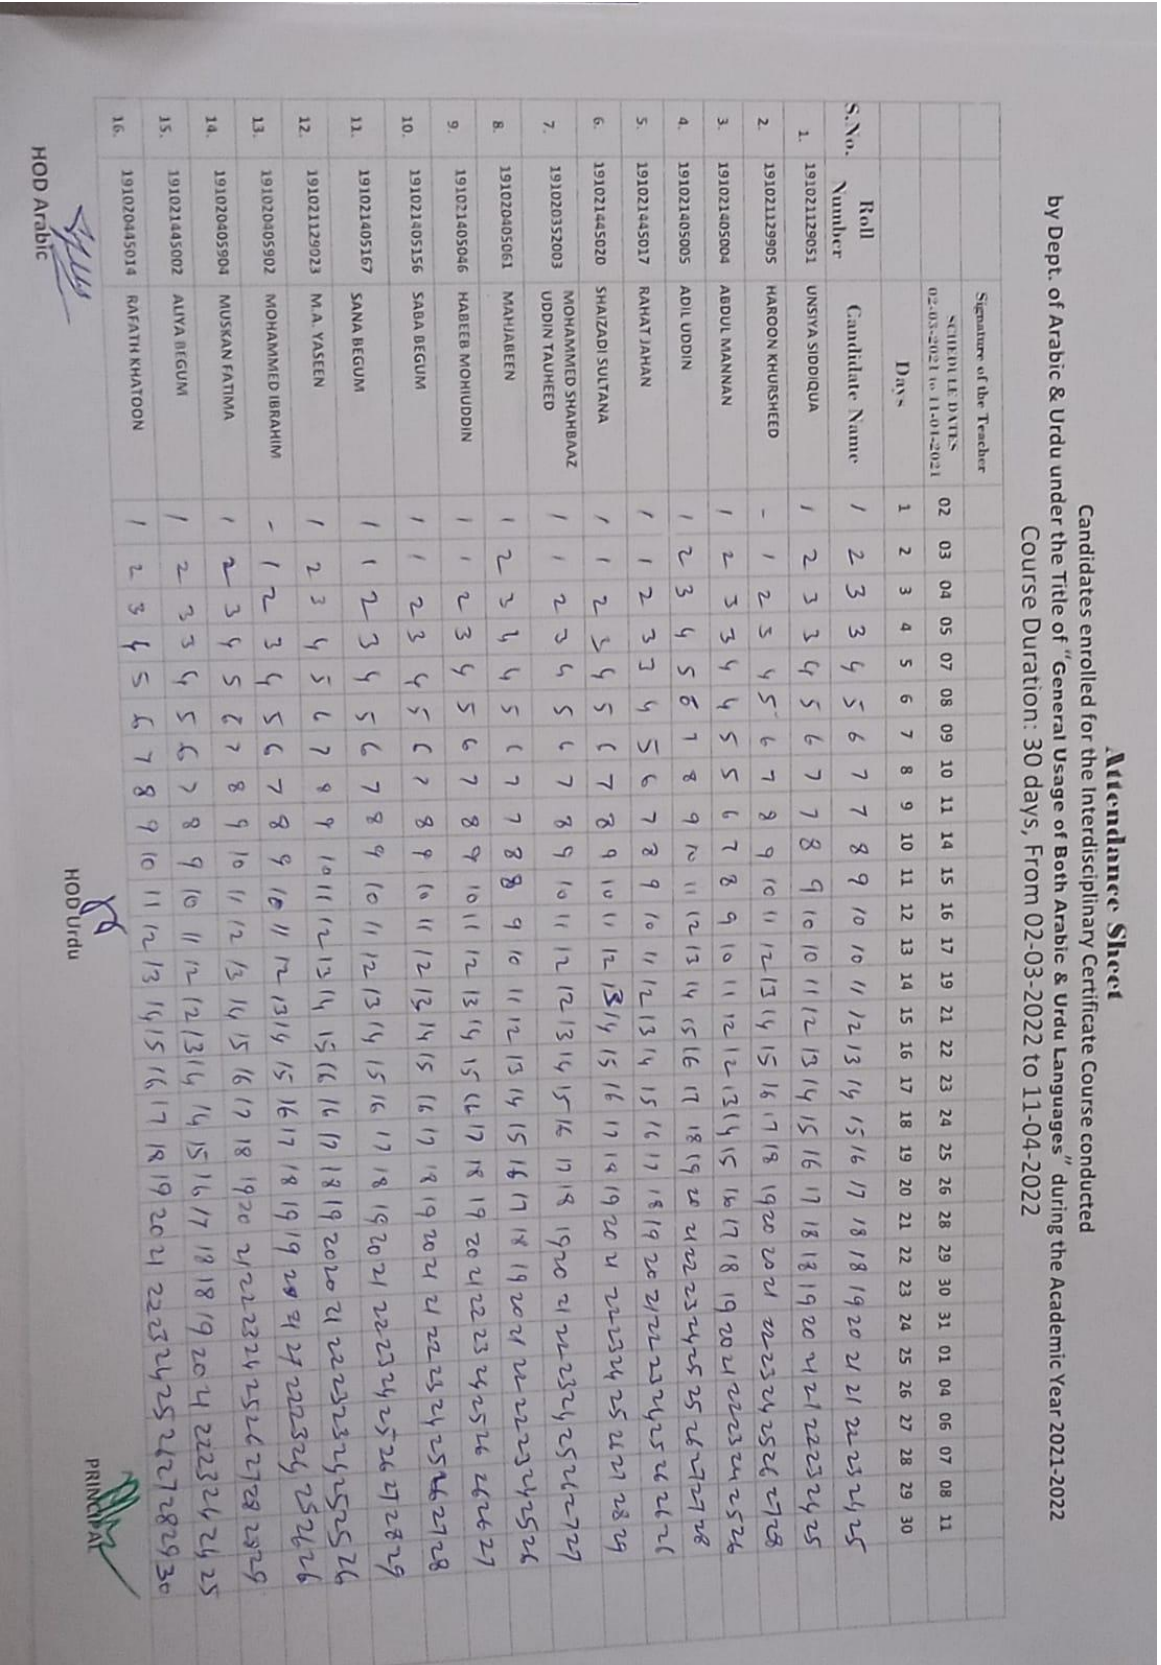 Attendance Sheet
Candidates enrolled for the Interdisciplinary Certificate Course conducted
by Dept. of Arabic & Urdu under the Title of "General Usage of Both Arabic & Urdu Languages" during the Academic Year 2021-2022
Course Duration: 30 days, From 02-03-2022 to 11-04-2022
Signature of the Teacher
SCHEDULE DATES
02-03-2021 to 11-04-2021 02 03 04 05 07 08 09 10 11 14 15 16 17 19 21 22 23 24 25 26 28 29 30 31 01 04 06 07 08 11
Days 1 2 3 4 5 6 7 8 9 10 11 12 13 14 15 16 17 18 19 20 21 22 23 24 25 26 27 28 29 30
S.No. Roll Number Candidate Name 1 2 3 3 4 5 6 7 7 8 9 10 10 11 12 13 14 15 16 17 18 18 19 20 21 21 22 23 24 25
1. 191021129051 UNSIYA SIDDIQUA 1 2 3 3 4 5 6 7 7 8 9 10 10 11 12 13 14 15 16 17 18 18 19 20 21 21 22 23 24 25
2. 191021129905 HAROON KHURSHEED - 1 2 3 4 5 6 7 8 9 10 11 12 13 14 15 16 17 18 19 20 20 21 22 23 24 25 26 27 28
3. 191021405004 ABDUL MANNAN 1 2 3 3 4 4 5 5 6 7 8 9 10 11 12 12 13 14 15 16 17 18 19 20 21 22 23 24 25 26
4. 191021405005 ADIL UDDIN 1 2 3 4 5 6 7 8 9 10 11 12 13 14 15 16 17 18 19 20 21 22 23 24 25 25 26 27 27 28
5. 191021445017 RAHAT JAHAN 1 1 2 3 3 4 5 6 7 8 9 10 11 12 13 14 15 16 17 18 19 20 21 22 23 24 25 26 26 26
6. 191021445020 SHAIZADI SULTANA 1 1 2 3 4 5 6 7 8 9 10 11 12 13 14 15 16 17 18 19 20 21 22 23 24 25 26 27 28 29
7. 191020352003 MOHAMMED SHAHBAAZ UDDIN TAUHEED 1 1 2 3 4 5 6 7 8 9 10 11 12 12 13 14 15 16 17 18 19 20 21 22 23 24 25 26 27 27
8. 191020405061 MAHJABEEN 1 2 3 4 4 5 6 7 7 8 8 9 10 11 12 13 14 15 16 17 18 19 20 21 22 22 23 24 25 26
9. 191021405046 HABEEB MOHIUDDIN 1 1 2 3 4 5 6 7 8 9 10 11 12 13 14 15 16 17 18 19 20 21 22 23 24 25 26 26 26 27
10. 191021405156 SABA BEGUM 1 1 2 3 4 5 6 7 8 9 10 11 12 13 14 15 16 17 18 19 20 21 21 22 23 24 25 26 27 28
11. 191021405167 SANA BEGUM 1 1 2 3 4 5 6 7 8 9 10 11 12 13 14 15 16 17 18 19 20 21 22 23 24 25 26 27 28 29
12. 191021129023 M.A. YASEEN 1 2 3 4 5 6 7 8 9 10 11 12 13 14 15 16 16 17 18 19 20 20 21 22 23 23 24 25 25 26
13. 191020405902 MOHAMMED IBRAHIM - 1 2 3 4 5 6 7 8 9 10 11 12 13 14 15 16 17 18 19 19 20 21 21 22 23 24 25 26 26
14. 191020405904 MUSKAN FATIMA 1 2 3 4 5 6 7 8 9 10 11 12 13 14 15 16 17 18 19 20 21 22 23 24 25 26 27 28 28 29
15. 191021445002 ALIYA BEGUM 1 2 3 3 4 5 6 7 8 9 10 11 12 12 13 14 14 15 16 17 18 18 19 20 21 22 23 24 24 25
16. 191020445014 RAFATH KHATOON 1 2 3 4 5 6 7 8 9 10 11 12 13 14 15 16 17 18 19 20 21 22 23 24 25 26 27 28 29 30
HOD Arabic HOD Urdu PRINCIPAL